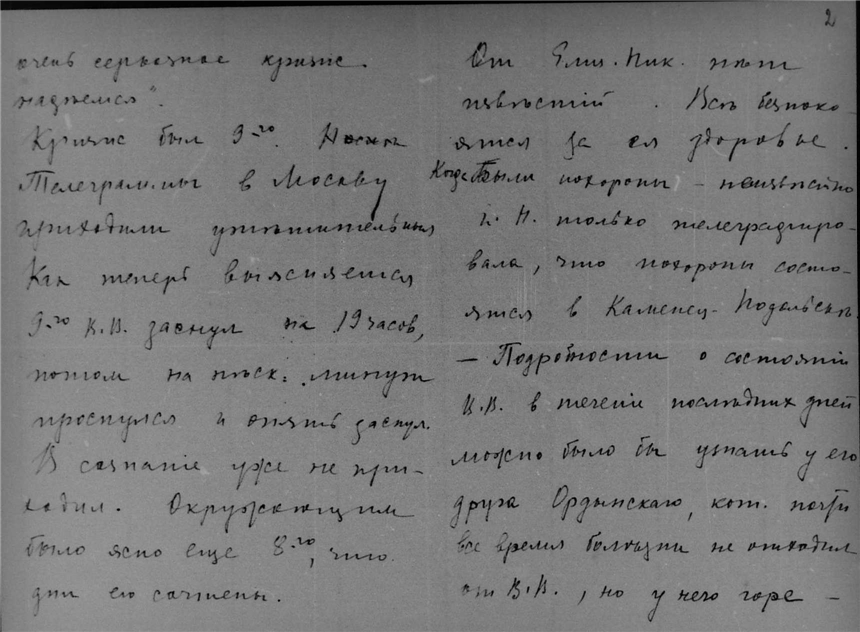 2
очень серьезное кризис.
надѣемся".
Кризис был 9-го.
Телеграммы в Москву
приходили утѣшительныя
Как теперь выясняется
9-го В.В. заснул на 19 часов,
потом на нѣск. минут
проснулся и опять заснул.
В сознаніе уже не при-
ходил. Окружающим
было ясно еще 8-го, что
дни его сочтены.
От Елиз. Ник. нѣт
извѣстій. Всѣ безпоко-
ятся за ея здоровье.
Когда были похороны - неизвѣстно
Н. только телеграфиро-
вала, что похороны состо-
ятся в Каменец-Подольскѣ.
— Подробности о состояніи
В.В. в теченіе послѣдних дней
можно было бы узнать у его
друга Ордынскаго, кот. почти
все время болѣзни не отходил
от В.В., но у него горе —